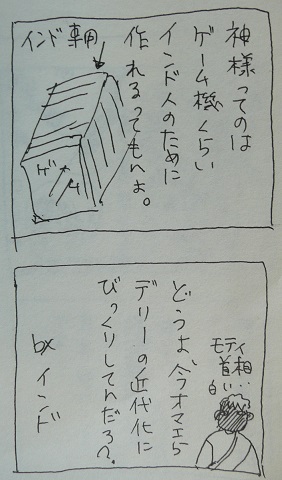 神様ってのは
ゲーム機くらい
インド人のために
作れるってもんよ。
インド専用
ゲーム
どうよ、今オマエら
デリーの近代化に
びっくりしてんだろ?
モディ
首相…
白い…
bx
インド